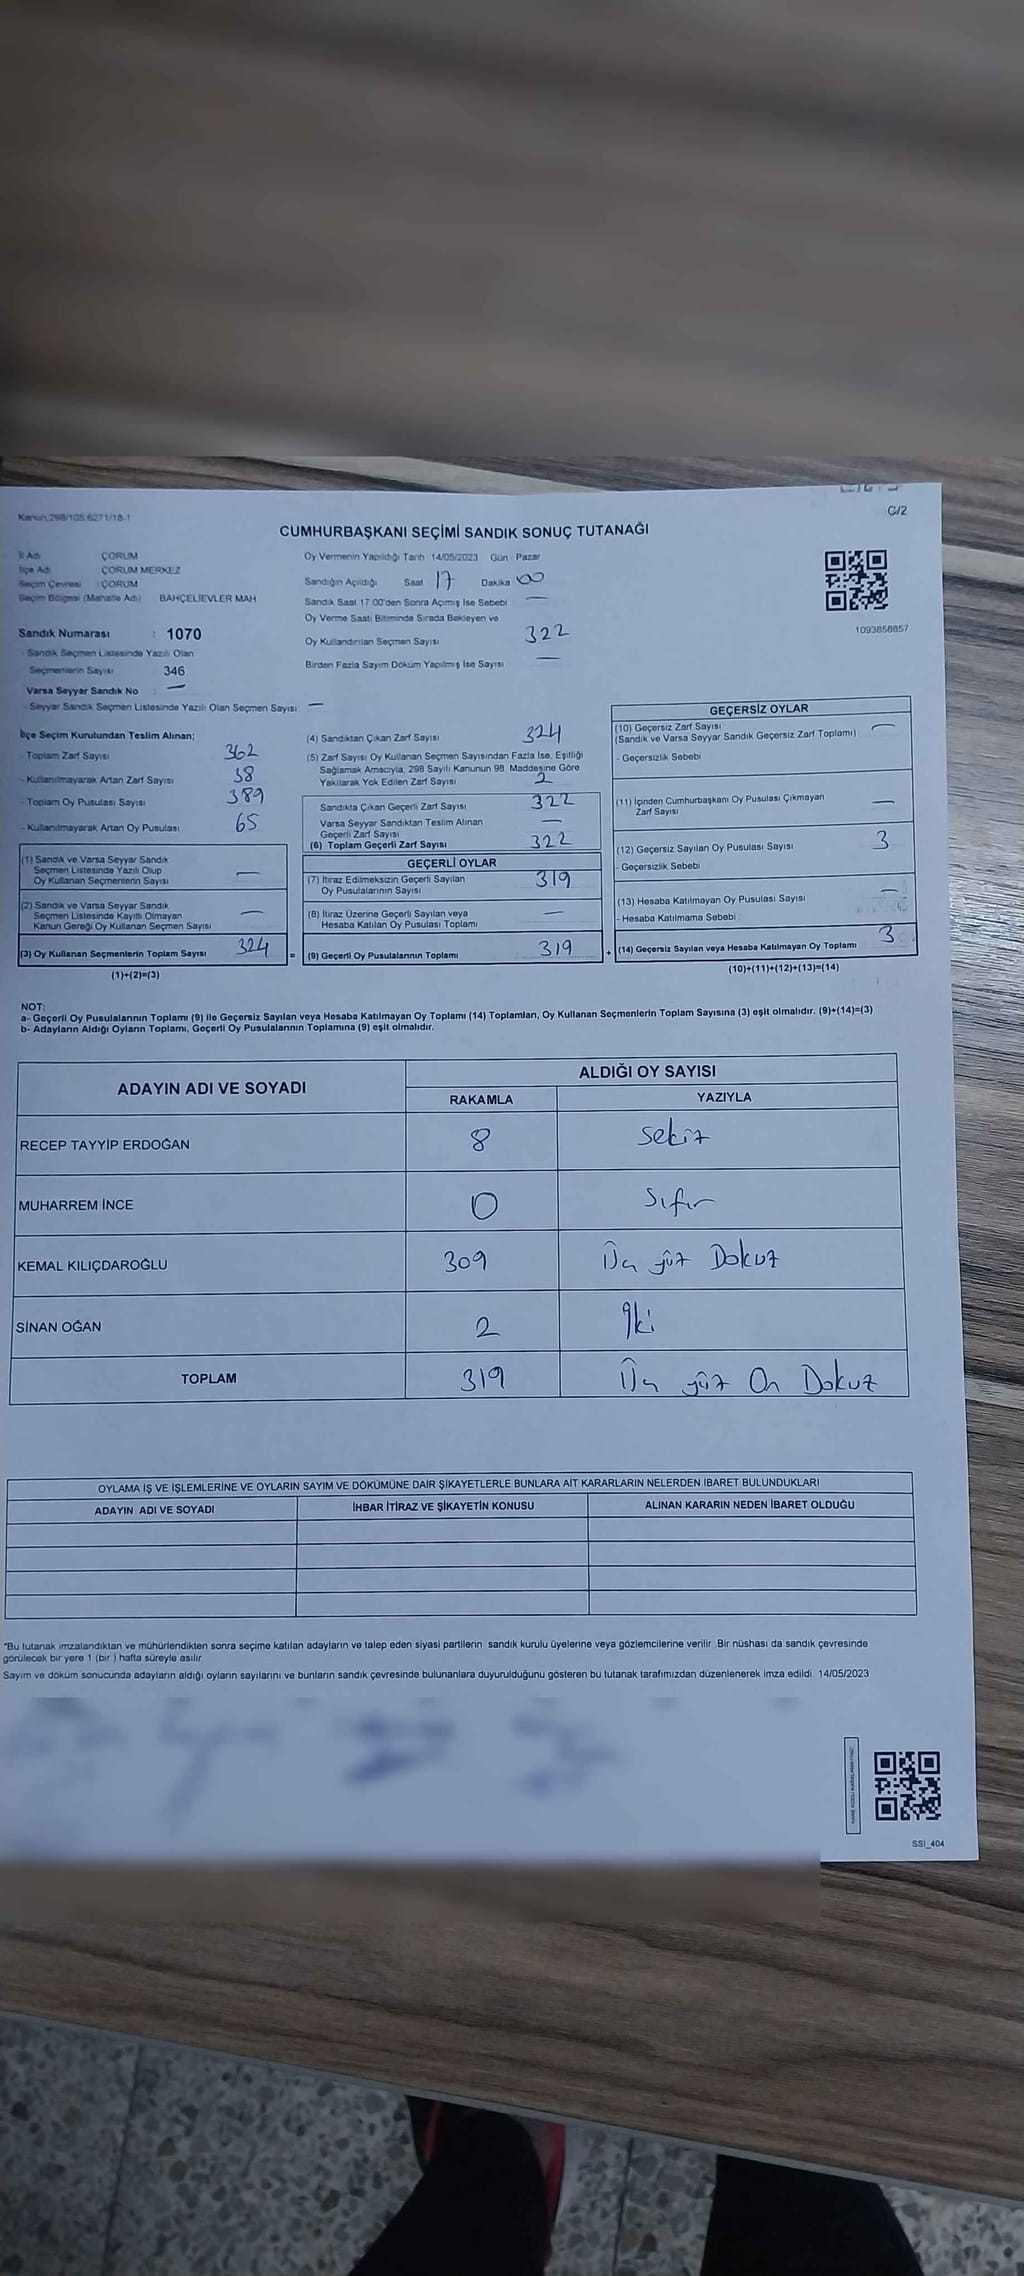 C/2
Kanun:298/105,6271/18-1
CUMHURBAŞKANI SEÇİMİ SANDIK SONUÇ TUTANAĞI
İl Adı ÇORUM
İlçe Adı ÇORUM MERKEZ
Seçim Çevresi : ÇORUM
Seçim Bölgesi (Mahalle Adı) BAHÇELİEVLER MAH
Sandık Numarası : 1070
- Sandık Seçmen Listesinde Yazılı Olan
Seçmenlerin Sayısı 346
Varsa Seyyar Sandık No —
- Seyyar Sandık Seçmen Listesinde Yazılı Olan Seçmen Sayısı —
Oy Vermenin Yapıldığı Tarih 14/05/2023 Gün Pazar
Sandığın Açıldığı Saat 17 Dakika 00
Sandık Saat 17:00'den Sonra Açımış İse Sebebi —
Oy Verme Saati Bitiminde Sırada Bekleyen ve
Oy Kullandırılan Seçmen Sayısı 322
Birden Fazla Sayım Döküm Yapılmış İse Sayısı —
1093858857
İlçe Seçim Kurulundan Teslim Alınan;
- Toplam Zarf Sayısı 362
- Kullanılmayarak Artan Zarf Sayısı 38
- Toplam Oy Pusulası Sayısı 389
- Kullanılmayarak Artan Oy Pusulası 65
(1) Sandık ve Varsa Seyyar Sandık
Seçmen Listesinde Yazılı Olup
Oy Kullanan Seçmenlerin Sayısı —
(2) Sandık ve Varsa Seyyar Sandık
Seçmen Listesinde Kayıtlı Olmayan
Kanun Gereği Oy Kullanan Seçmen Sayısı —
(3) Oy Kullanan Seçmenlerin Toplam Sayısı 324
(1)+(2)=(3)
(4) Sandıktan Çıkan Zarf Sayısı 324
(5) Zarf Sayısı Oy Kullanan Seçmen Sayısından Fazla İse, Eşitliği
Sağlamak Amacıyla, 298 Sayılı Kanunun 98. Maddesine Göre
Yakılarak Yok Edilen Zarf Sayısı 2
Sandıkta Çıkan Geçerli Zarf Sayısı 322
Varsa Seyyar Sandıktan Teslim Alınan
Geçerli Zarf Sayısı —
(6) Toplam Geçerli Zarf Sayısı 322
GEÇERLİ OYLAR
(7) İtiraz Edilmeksizin Geçerli Sayılan
Oy Pusulalarının Sayısı 319
(8) İtiraz Üzerine Geçerli Sayılan veya
Hesaba Katılan Oy Pusulası Toplamı —
= (9) Geçerli Oy Pusulalarının Toplamı 319
GEÇERSİZ OYLAR
(10) Geçersiz Zarf Sayısı
(Sandık ve Varsa Seyyar Sandık Geçersiz Zarf Toplamı) —
- Geçersizlik Sebebi
(11) İçinden Cumhurbaşkanı Oy Pusulası Çıkmayan
Zarf Sayısı —
(12) Geçersiz Sayılan Oy Pusulası Sayısı 3
- Geçersizlik Sebebi
(13) Hesaba Katılmayan Oy Pusulası Sayısı —
- Hesaba Katılmama Sebebi
+ (14) Geçersiz Sayılan veya Hesaba Katılmayan Oy Toplamı 3
(10)+(11)+(12)+(13)=(14)
NOT:
a- Geçerli Oy Pusulalarının Toplamı (9) ile Geçersiz Sayılan veya Hesaba Katılmayan Oy Toplamı (14) Toplamları, Oy Kullanan Seçmenlerin Toplam Sayısına (3) eşit olmalıdır. (9)+(14)=(3)
b- Adayların Aldığı Oyların Toplamı, Geçerli Oy Pusulalarının Toplamına (9) eşit olmalıdır.
ADAYIN ADI VE SOYADI ALDIĞI OY SAYISI
RAKAMLA YAZIYLA
RECEP TAYYİP ERDOĞAN 8 Sekiz
MUHARREM İNCE 0 Sıfır
KEMAL KILIÇDAROĞLU 309 Üç yüz Dokuz
SİNAN OĞAN 2 İki
TOPLAM 319 Üç yüz On Dokuz
OYLAMA İŞ VE İŞLEMLERİNE VE OYLARIN SAYIM VE DÖKÜMÜNE DAİR ŞİKAYETLERLE BUNLARA AİT KARARLARIN NELERDEN İBARET BULUNDUKLARI
ADAYIN ADI VE SOYADI İHBAR İTİRAZ VE ŞİKAYETİN KONUSU ALINAN KARARIN NEDEN İBARET OLDUĞU
*Bu tutanak imzalandıktan ve mühürlendikten sonra seçime katılan adayların ve talep eden siyasi partilerin sandık kurulu üyelerine veya gözlemcilerine verilir. Bir nüshası da sandık çevresinde
görülecek bir yere 1 (bir) hafta süreyle asılır.
Sayım ve döküm sonucunda adayların aldığı oyların sayılarını ve bunların sandık çevresinde bulunanlara duyurulduğunu gösteren bu tutanak tarafımızdan düzenlenerek imza edildi 14/05/2023
SSI_404